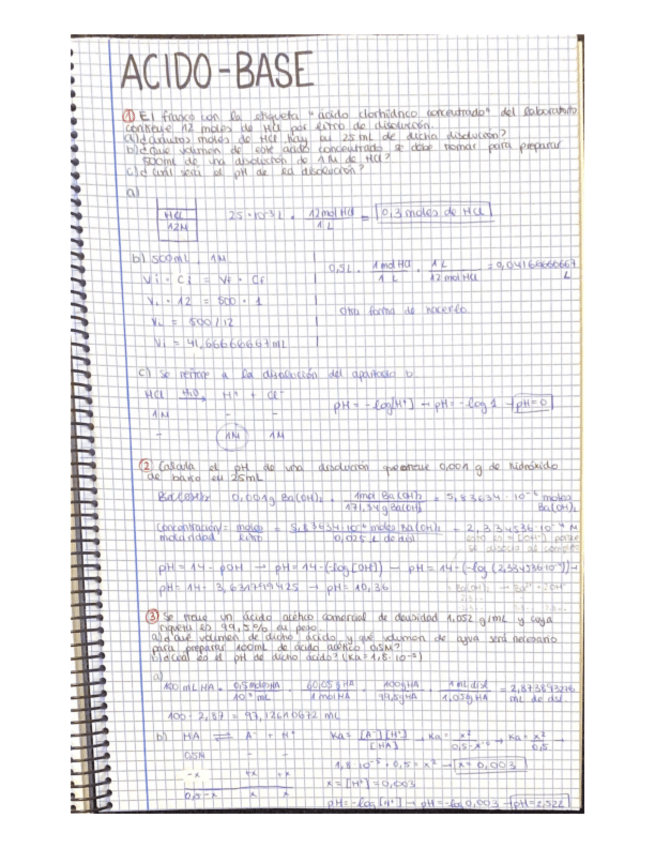 ACIDO-BASE
① El frasco con la etiqueta "ácido clorhídrico concentrado" del laboratorio
contiene 12 moles de HCl por litro de disolución.
a) ¿Cuántos moles de HCl hay en 25mL de dicha disolución?
b) ¿Que volumen de este ácido concentrado se debe tomar para preparar
500mL de una disolución de 1M de HCl?
c) ¿Cuál será el pH de la disolución?
a)
HCl
12M
25·10⁻³L · 12 mol HCl / 1L = 0,3 moles de HCl
b) 500mL, 1M
Vi · Ci = Vf · Cf
Vi · 12 = 500 · 1
Vi = 500/12
Vi = 41,66666667mL
0,5L · 1 mol HCl / 1 L · 1 L / 12 mol HCl = 0,04166666667 L
Otra forma de hacerlo
c) Se refiere a la disolución del apartado b
HCl H₂O→ H⁺ + Cl⁻
1M - -
- 1M 1M
pH = -log[H⁺] → pH = -log 1 → pH=0
② Calcula el pH de una disolución que 0,001 g de hidróxido
de bario en 25mL
Ba(OH)₂ 0,001g Ba(OH)₂ · 1mol Ba(OH)₂ / 171,34g Ba(OH)₂ = 5,83634·10⁻⁶ moles Ba(OH)₂
Concentración = moles / litro = 5,83634·10⁻⁶ moles Ba(OH)₂ / 0,025 L de disl = 2,334536·10⁻⁴ M
molaridad
pH = 14 - pOH → pH = 14-(-log[OH]) → pH = 14-(-log(2,334536·10⁻⁴)) →
pH = 14- 3,631799425 → pH = 10,36
③ Se tiene un ácido acético comercial de densidad 1,052 g/mL y cuya
riqueza es 99,5% en peso.
a) ¿Qué volumen de dicho ácido y qué volumen de agua será necesario
para preparar 100mL de ácido acético 0,5M?
b) ¿Cuál es el pH de dicho ácido? (Ka = 1,8·10⁻⁵)
a)
100 mL HA · 0,5 moles HA / 10³ mL · 60,05g HA / 1 mol HA · 100g HA / 99,5g HA · 1 mL disl / 1,05g HA = mL de disl.
100 - 2,87 = 97,12610672 mL
b) HA ⇌ A⁻ + H⁺
0,5M - -
-x +x +x
0,5-x x x
Ka = [A⁻][H⁺] / [HA] → Ka = x² / 0,5-x → Ka = x² / 0,5 →
1,8·10⁻⁵ · 0,5 = x² → x = 0,003
x = [H⁺] = 0,003
pH = -log[H⁺] → pH = -log 0,003 → pH=2,522